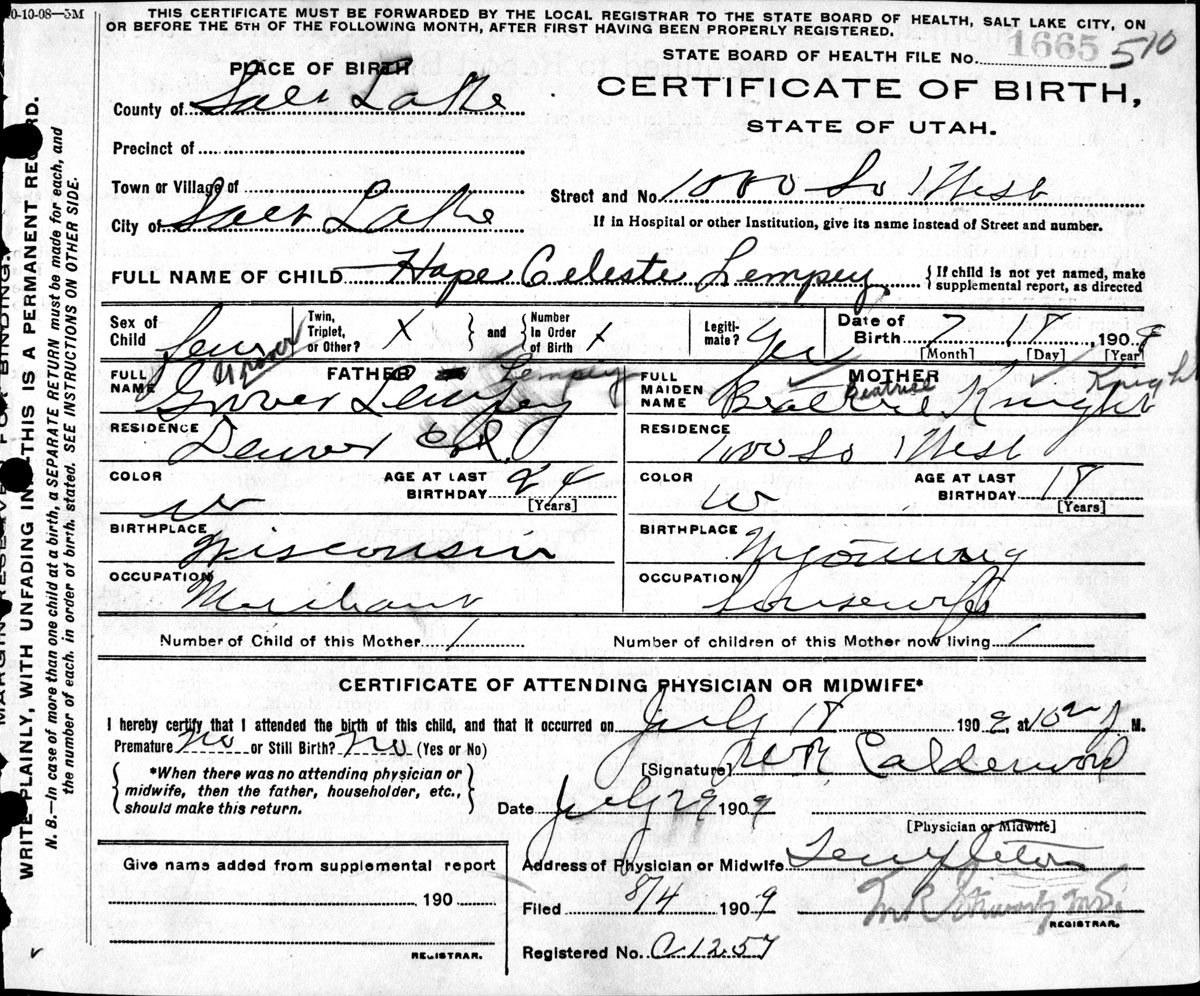 0-10-08—5M
THIS CERTIFICATE MUST BE FORWARDED BY THE LOCAL REGISTRAR TO THE STATE BOARD OF HEALTH, SALT LAKE CITY, ON
OR BEFORE THE 5TH OF THE FOLLOWING MONTH, AFTER FIRST HAVING BEEN PROPERLY REGISTERED.
STATE BOARD OF HEALTH FILE No. 1665 510
PLACE OF BIRTH
CERTIFICATE OF BIRTH,
STATE OF UTAH.
County of Salt Lake
Precinct of
Town or Village of
Street and No 1000 So 1 West
City of Salt Lake
If in Hospital or other Institution, give its name instead of Street and number.
FULL NAME OF CHILD Hope Celeste Lempey
{ If child is not yet named, make
supplemental report, as directed
Sex of Child
Twin, Triplet, or Other? X } and { Number In Order of Birth X
Legiti- mate? Yes
Date of Birth 7 18, 1909
[Month] [Day] [Year]
FULL NAME FATHER Grover Lempey
Grover Lempey
FULL MAIDEN NAME MOTHER Beatrice Knight
Beatrice Knight
RESIDENCE Denver Col.
RESIDENCE 1000 So 1 West
COLOR W AGE AT LAST BIRTHDAY 24 [Years]
COLOR W AGE AT LAST BIRTHDAY 18 [Years]
BIRTHPLACE Wisconsin
BIRTHPLACE Wyoming
OCCUPATION Merchant
OCCUPATION Housewife
Number of Child of this Mother 1
Number of children of this Mother now living 1
CERTIFICATE OF ATTENDING PHYSICIAN OR MIDWIFE*
I hereby certify that I attended the birth of this child, and that it occurred on July 18 1909, at M.
Premature No or Still Birth? No (Yes or No)
{ *When there was no attending physician or
midwife, then the father, householder, etc.,
should make this return. }
[Signature] Calderwood
Date July 29 1909
[Physician or Midwife]
Give name added from supplemental report
190
REGISTRAR.
Address of Physician or Midwife Templeton
Filed 8/4 1909
REGISTRAR.
Registered No. C 1257
MARGIN RESERVED FOR BINDING.
WRITE PLAINLY, WITH UNFADING INK—THIS IS A PERMANENT RECORD.
N. B.—In case of more than one child at a birth, a SEPARATE RETURN must be made for each, and
the number of each, in order of birth, stated. SEE INSTRUCTIONS ON OTHER SIDE.